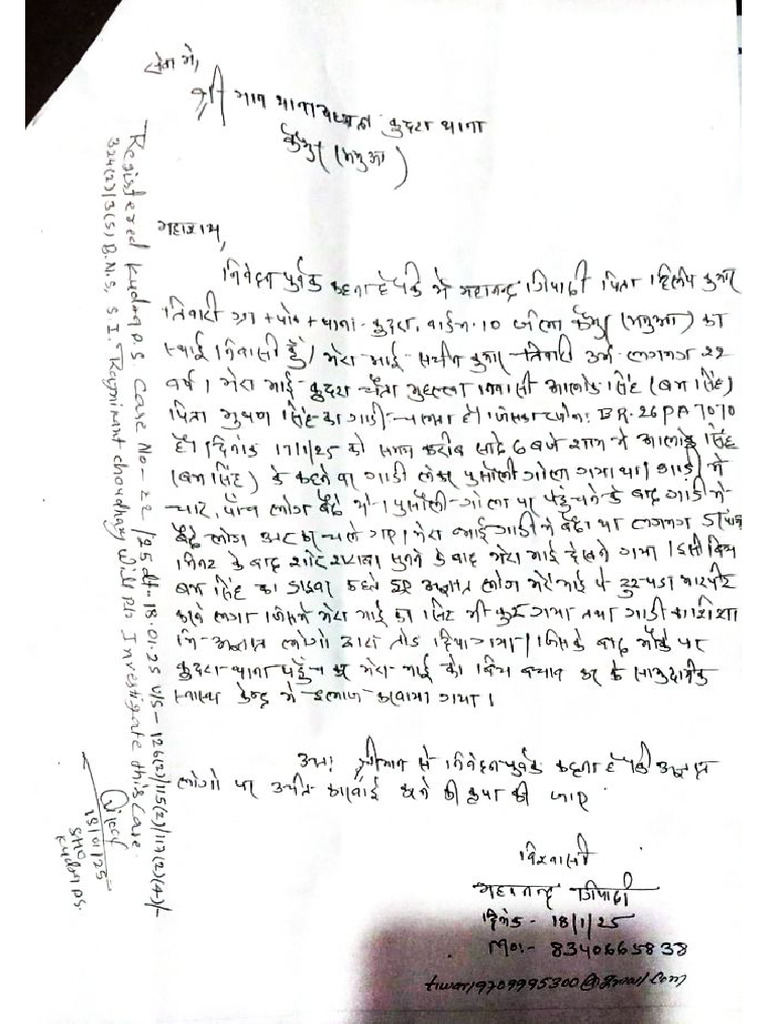 सेवा में,
श्री मान थानाध्यक्ष कुदरा थाना
कैमुर (भभुआ)
महाशय,
निवेदन पुर्वक कहना है कि मैं महानन्द त्रिपाठी पिता दिलीप कुमार
तिवारी ग्रा + पो० + थाना- कुदरा, वार्ड न० 10 जिला कैमुर (भभुआ) का
स्थाई निवासी हुँ। मेरा भाई- सचीन कुमार तिवारी उर्म लगभग 22
वर्ष। मेरा भाई कुदरा मुहल्ला निवासी आलोक सिंह (बम सिंह)
पिता भुषण सिंह का गाडी चलाता है। जिसका BR-26PA7070
है। दिनांक 17/1/25 को समय करीब साढे 6 बजे शाम में आलोक सिंह
(बम सिंह) के कहने पर गाडी लेकर पुसौली गोला गया था। गाडी में
चार, पाँच लोग बैठे थे। पुसौली-गोला पर पहुंचने के बाद गाडी में
बैठे लोग उतर कर चले गए। मेरा भाई गाडी में बैठा था लगभग 5 पांच
मिनट के बाद शोर शराबा सुनने के बाद मेरा भाई देखने गया। इसी बिच
बम सिंह का ड्राइवर कहते हुए अज्ञात लोग मेरे भाई पे टुट पडा मारपीट
करने लगा जिसमें मेरा भाई का सिर भी फुट गया तथा गाडी का शिशा
भी अज्ञात लोगो द्वारा तोड दिया गया। जिसके बाद मौके पर
कुदरा थाना पहुँच कर मेरा भाई को बिच बचाव कर के सामुदायीक
स्वास्थ्य केन्द्र में इलाज करवाया गया।
अतः श्रीमान से निवेदन पुर्वक कहना है की अज्ञात
लोगो पर उचीत कारवाई करने की कृपा की जाए
विश्वासी
महानन्द त्रिपाठी
दिनांक - 18/1/25
Mo:- 8340665838
tiwari9709995300@gmail.com
Registered Kudra P.S. Case No- 22/25 dt- 18.01.25 U/S- 126(2)/115(2)/117(2)(4)/-
324(2)/3(5) B.N.S, S.I. Rajnikant choudhary will p/s Investigate this case.
18/01/25
SHO
Kudra P.S.